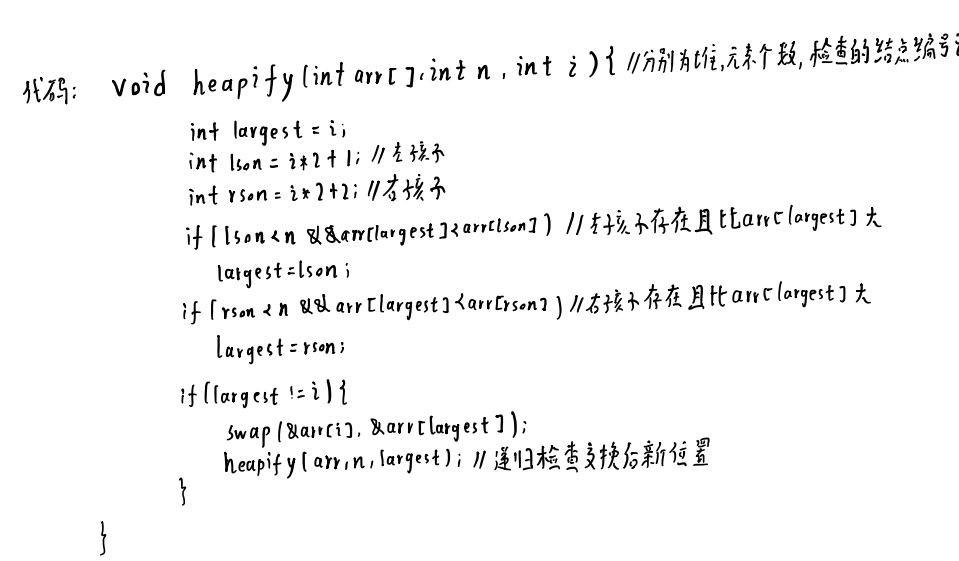 代码: void heapify(int arr[],int n, int i){ //分别为堆,元素个数,检查的结点编号i
int largest = i;
int lson = i*2+1; //左孩子
int rson = i*2+2; //右孩子
if(lson<n &&arr[largest]<arr[lson]) //左孩子存在且比arr[largest]大
largest=lson;
if(rson<n && arr[largest]<arr[rson]) //右孩子存在且比arr[largest]大
largest=rson;
if(largest != i){
swap(&arr[i], &arr[largest]);
heapify(arr,n,largest); //递归检查交换后新位置
}
}